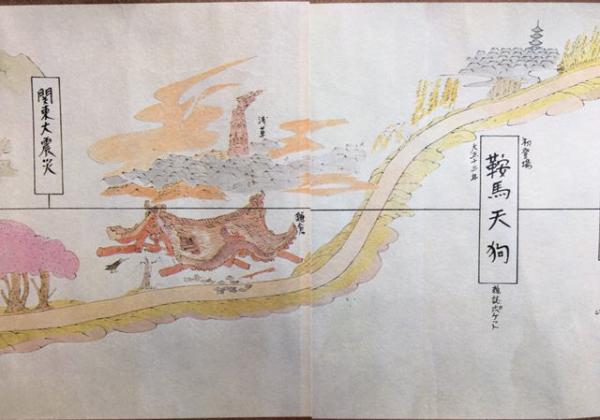 関東大震災
浅草
鎌倉
初登場
大正十三年
鞍馬天狗
雑誌ポケット